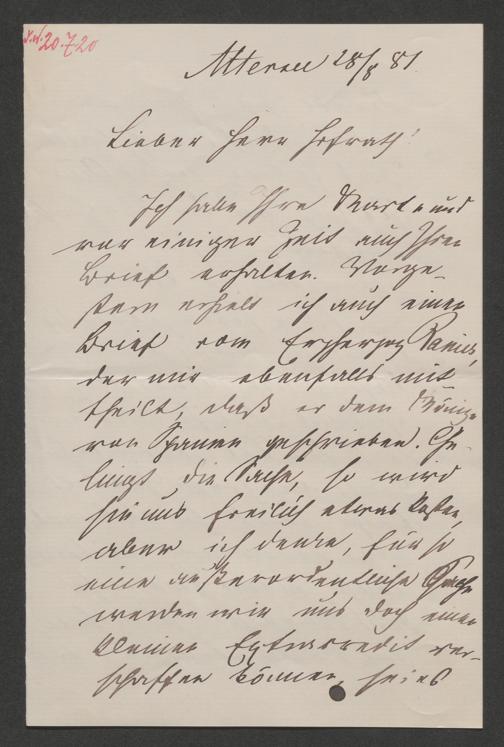 20.720
Attersee 28/8 81
Lieber Herr Hofrath!
Ich habe Ihre Karte und
vor einiger Zeit auch Ihren
Brief erhalten. Vorge-
stern erhielt ich auch einen
Brief vom Erzherzog Rainer,
der mir ebenfalls mit-
theilt, daß er dem König
von Spanien geschrieben. Ge-
lingt die Sache, so wird
sie uns freilich etwas kosten,
aber ich denke, für so
eine außerordentliche Sache
werden wir uns doch einen
kleinen Extracredit ver-
schaffen können, sei es